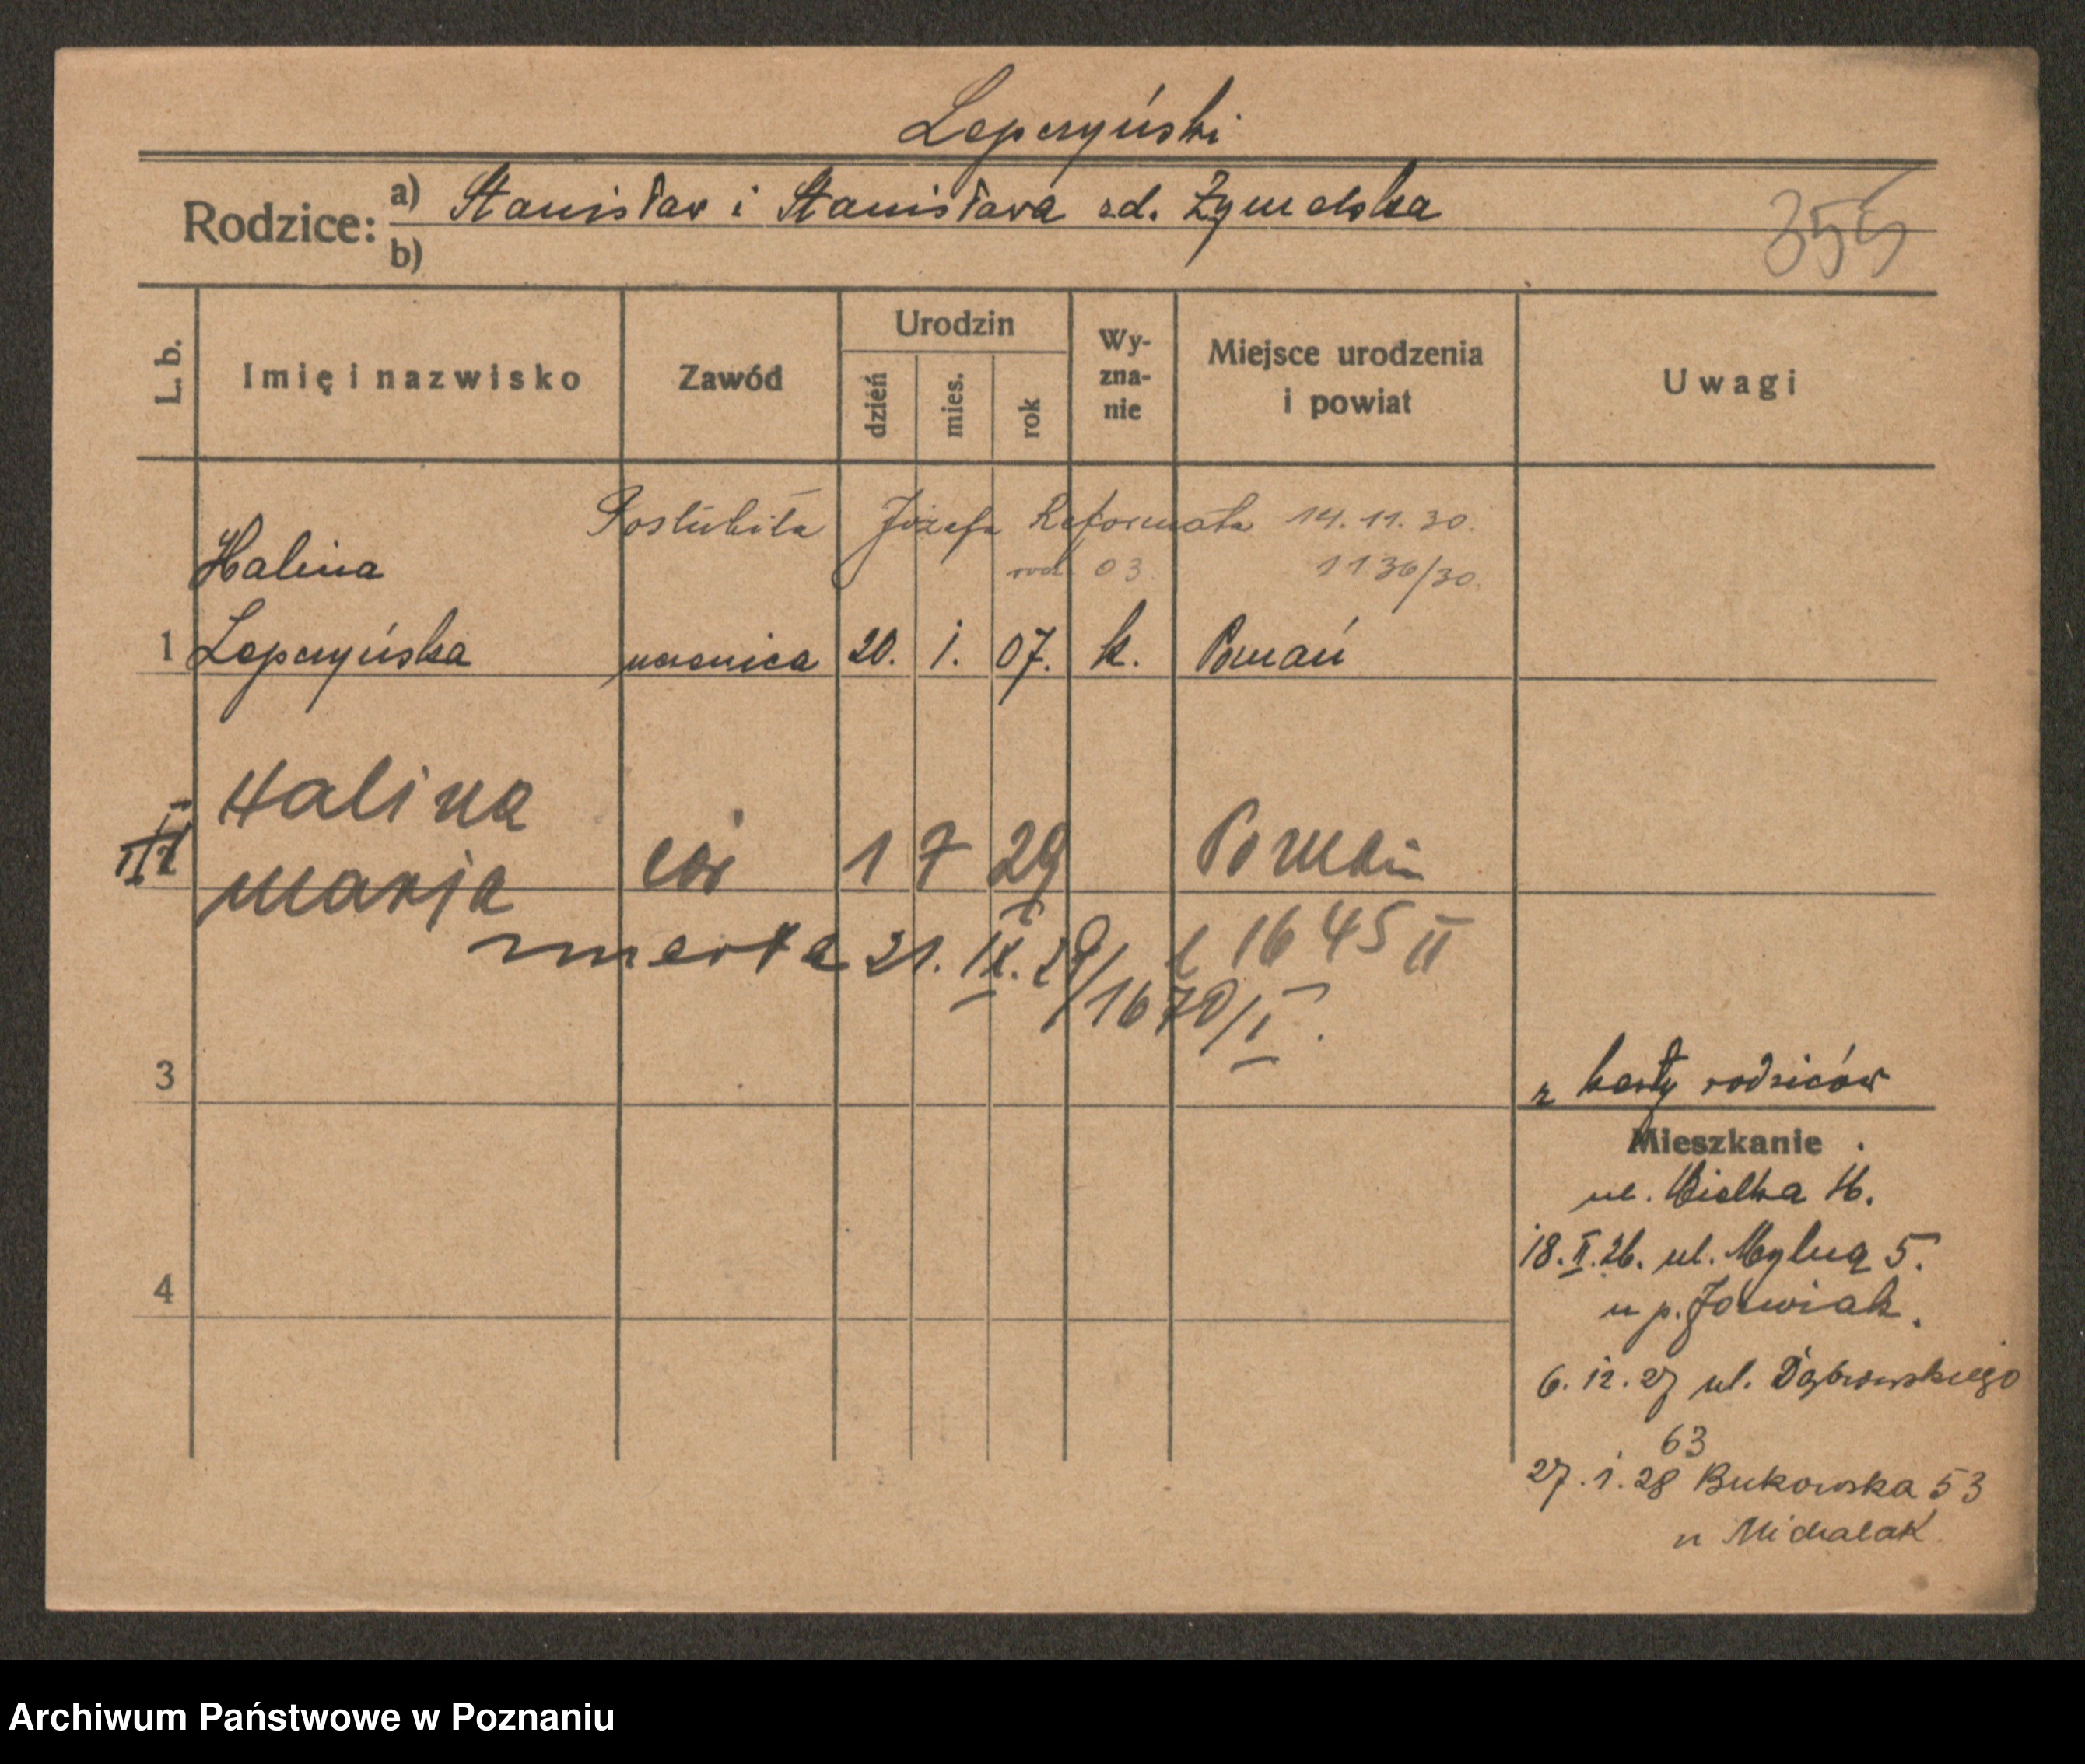 Lepczyński
Rodzice: a) Stanisław i Stanisława zd. Żymelska
b)
355
L. b.
Imię i nazwisko
Zawód
Urodzin
dzień
mies.
rok
Wy-
zna-
nie
Miejsce urodzenia
i powiat
Uwagi
Poślubiła Józefa Reformata 14.11.30.
Halina
rod. 03 1136/30.
1 Lepczyńska uczenica 20. i. 07. k. Poznań
Halina
II cór 1 7 29 Poznań
Marja
zmarła 21. IX. 29/1670/I.
1645 II
3
z karty rodziców
Mieszkanie
ul. Wielka 16.
18.II.26. ul. Mylna 5.
u p. Jóźwiak.
4
6.12.27 ul. Dąbrowskiego
63
27.1.28 Bukowska 53
u Michalak
Archiwum Państwowe w Poznaniu